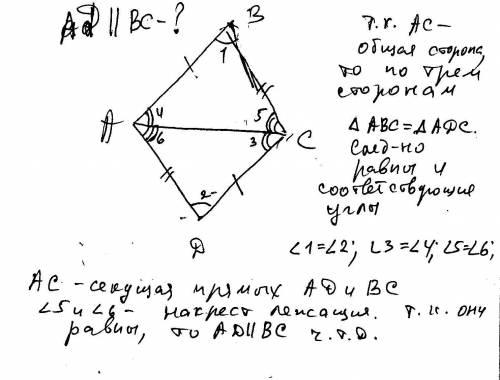 AD || BC - ?
B
1
A
4
6
5
3
C
2
D
т.к. AC -
общая сторона
то по трем
сторонам
Δ ABC = Δ ADC.
След-но
равны и
соответствующие
углы
∠1=∠2; ∠3=∠4; ∠5=∠6;
AC - секущая прямых AD и BC
∠5 и ∠6 - накрест лежащия. т.к. они
равны, то AD || BC ч.т.д.